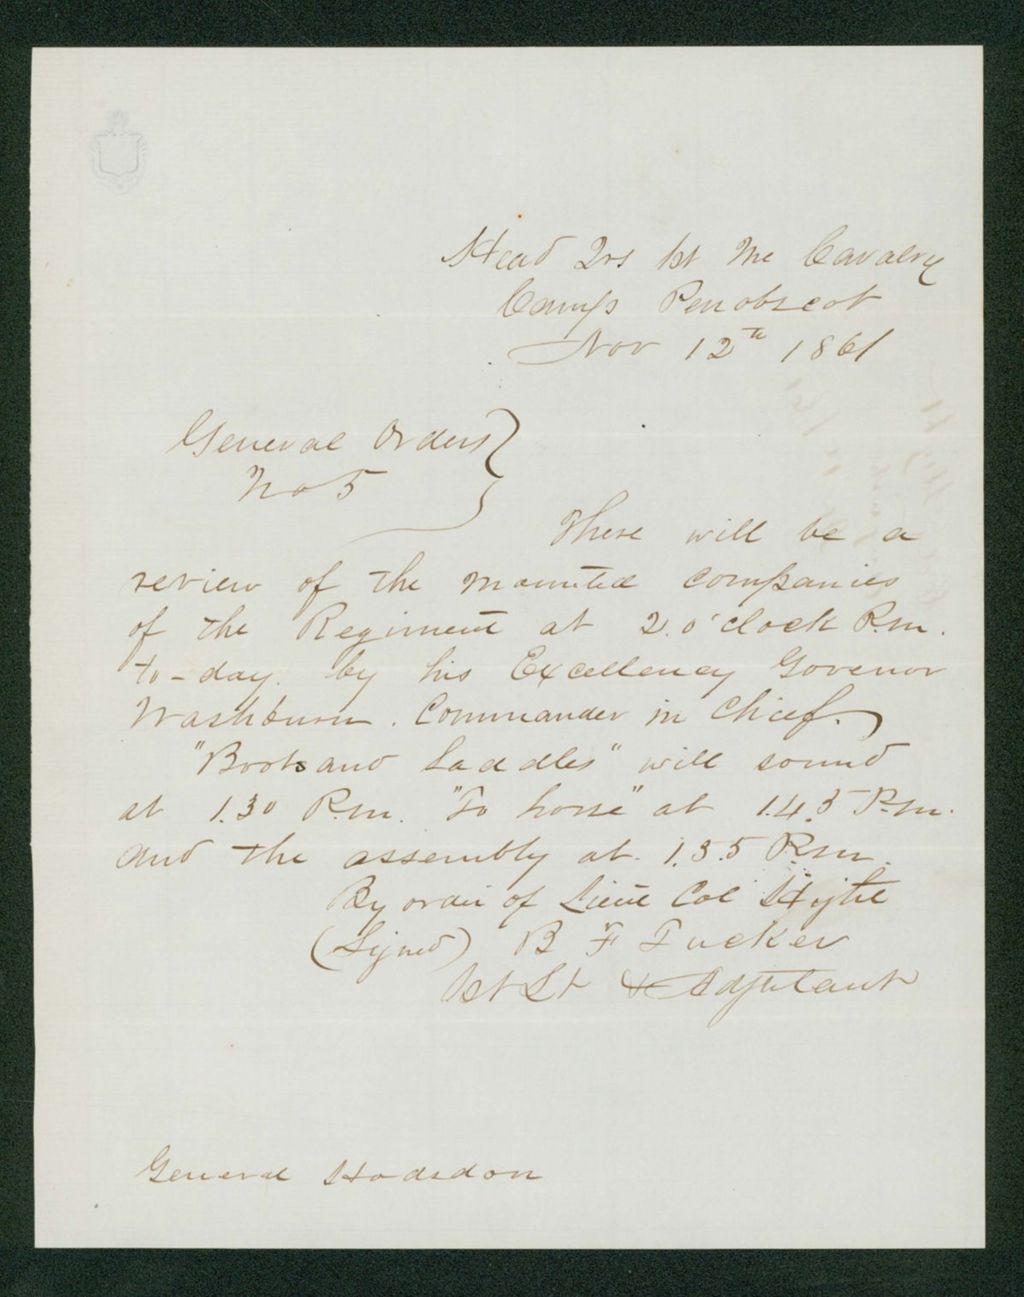 Head Qrs 1st Me Cavalry
Camp Penobscot
Nov 12th 1861
General Orders
No 5
There will be a
review of the mounted companies
of the Regiment at 2.o'clock P.m.
to-day. by his Excellency Govenor
Washburn. Commander in Chief.
"Boots and Saddles" will sound
at 1.30 P.m. "To horse" at 1.4.5 P.m.
and the assembly at. 1.5.5 P.m.
By order of Lieut Col Hight
(Signed) B F Tucker
1st Lt & Adjutant
General Hodsdon